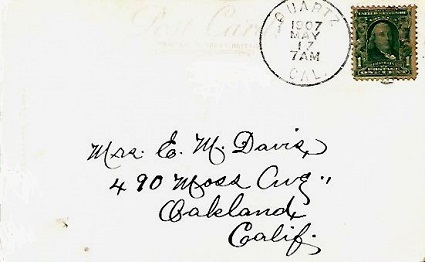 Post Card
QUARTZ
1907
MAY
17
7AM
CAL.
1 1
Mrs. E. M. Davis,
490 Moss Avg"
Oakland,
Calif.